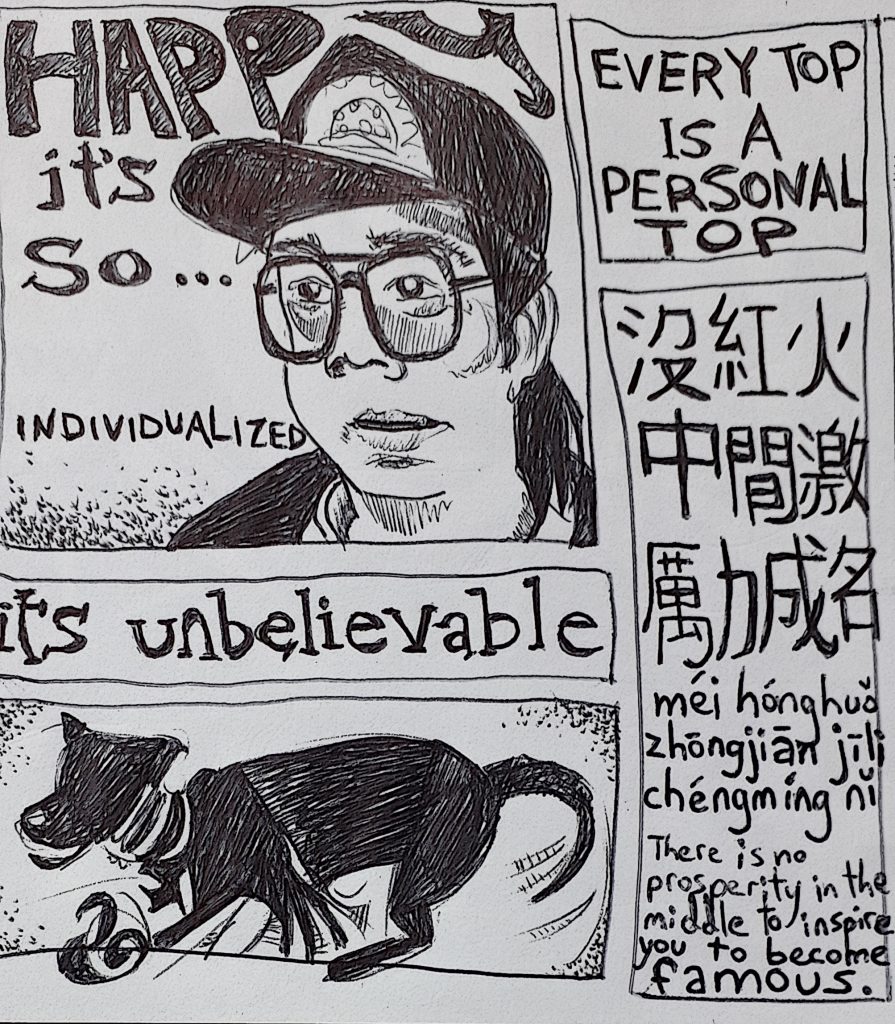 HAPPY
it's
so...
INDIVIDUALIZED
EVERY TOP
IS A
PERSONAL
TOP
沒紅火
中間激
勵成名
méi hónghuǒ
zhōngjiān jīlì
chéngmíng nǐ
There is no
prosperity in the
middle to inspire
you to become
famous.
it's unbelievable